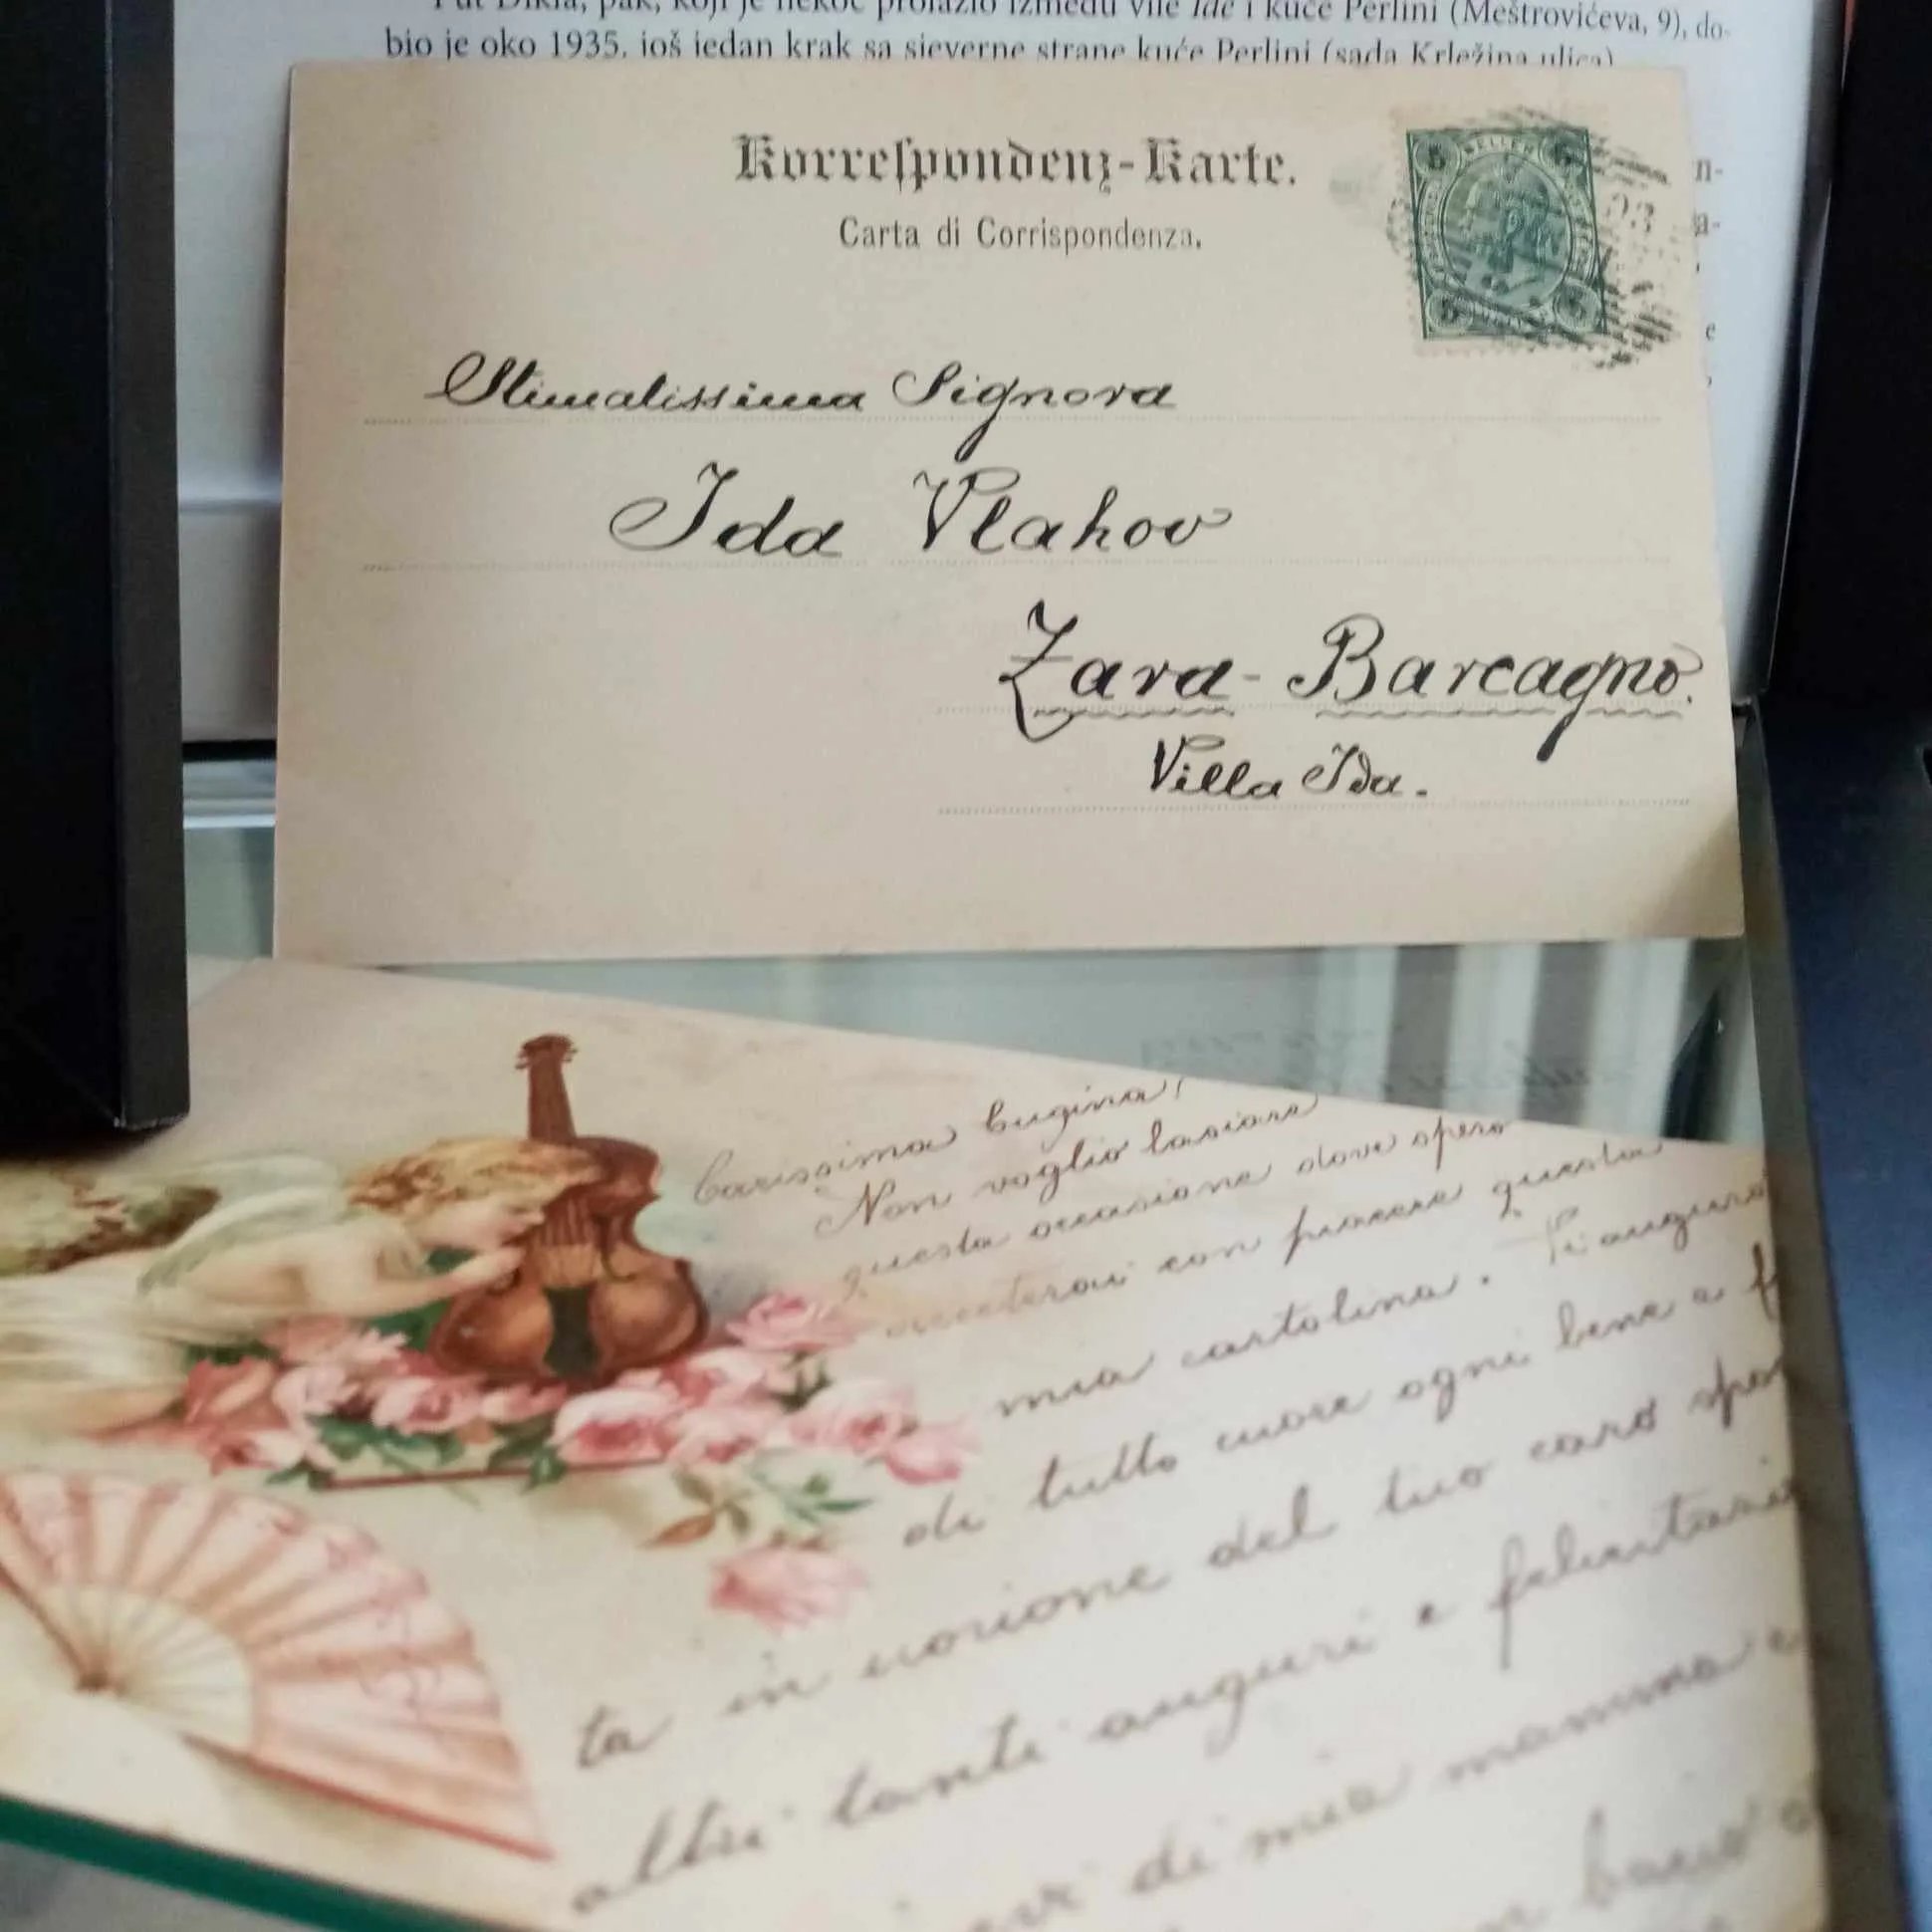 Put Dikla, pak, koji je nekoć prolazio između vile Ide i kuće Perlini (Meštrovićeva, 9), do-
bio je oko 1935. još jedan krak sa sjeverne strane kuće Perlini (sada Krležina ulica)
Korreſpondenz-Karte.
Carta di Corrispondenza.
5 HELLER 5
5 5
Stimatissima Signora
Ida Vlahov
Zara-Barcagno.
Villa Ida.
Carissima cugina!
Non voglio lasciare
questa occasione dove spero
accetterai con piacere questa
mia cartolina. Ti auguro
di tutto cuore ogni bene e f
ta in unione del tuo caro spo
altri tanti auguri e felicitazio
di mia mamma e
bacio